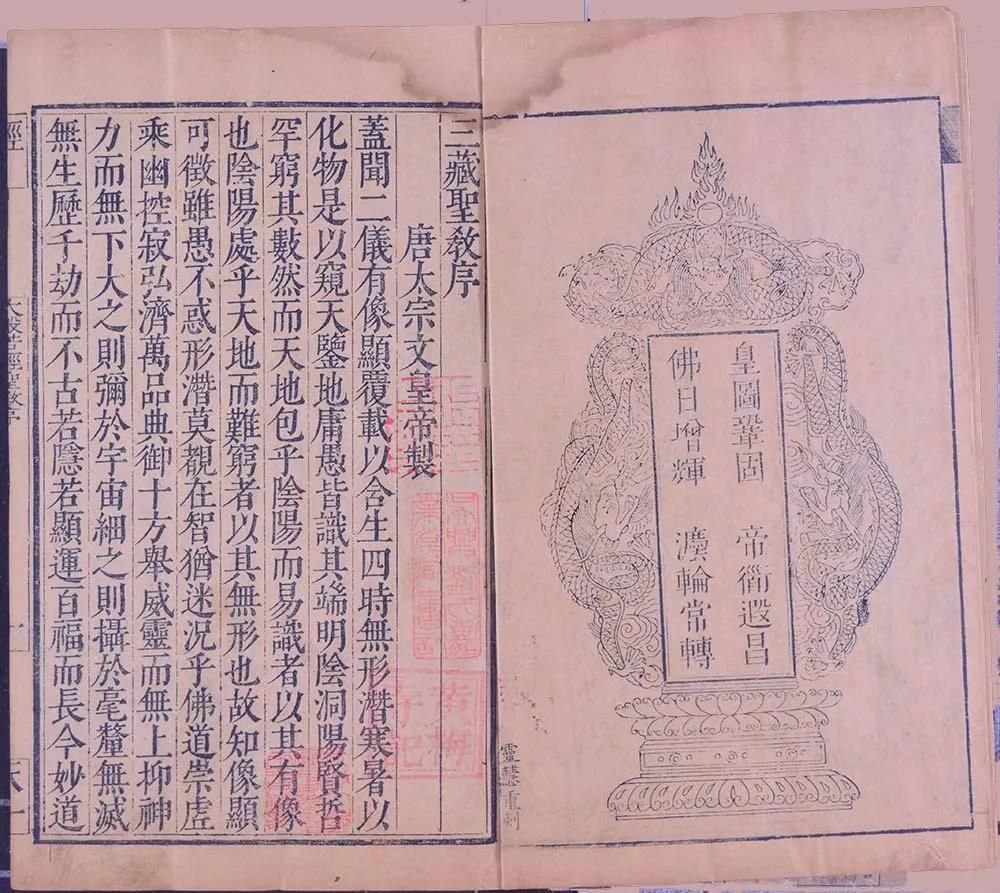 皇圖鞏固　帝衜遐昌
佛日增輝　灋輪常轉
靈慧重刺
三藏聖教序
唐太宗文皇帝製
蓋聞二儀有像顯覆載以含生四時無形潛寒暑以
化物是以窺天鑒地庸愚皆識其端明陰洞陽賢哲
罕窮其數然而天地包乎陰陽而易識者以其有像
也陰陽處乎天地而難窮者以其無形也故知像顯
可徵雖愚不惑形潛莫覩在智猶迷況乎佛道崇虗
乘幽控寂弘濟萬品典御十方舉威靈而無上抑神
力而無下大之則彌於宇宙細之則攝於毫釐無滅
無生歷千劫而不古若隱若顯運百福而長今妙道
大般若經聖教序
經